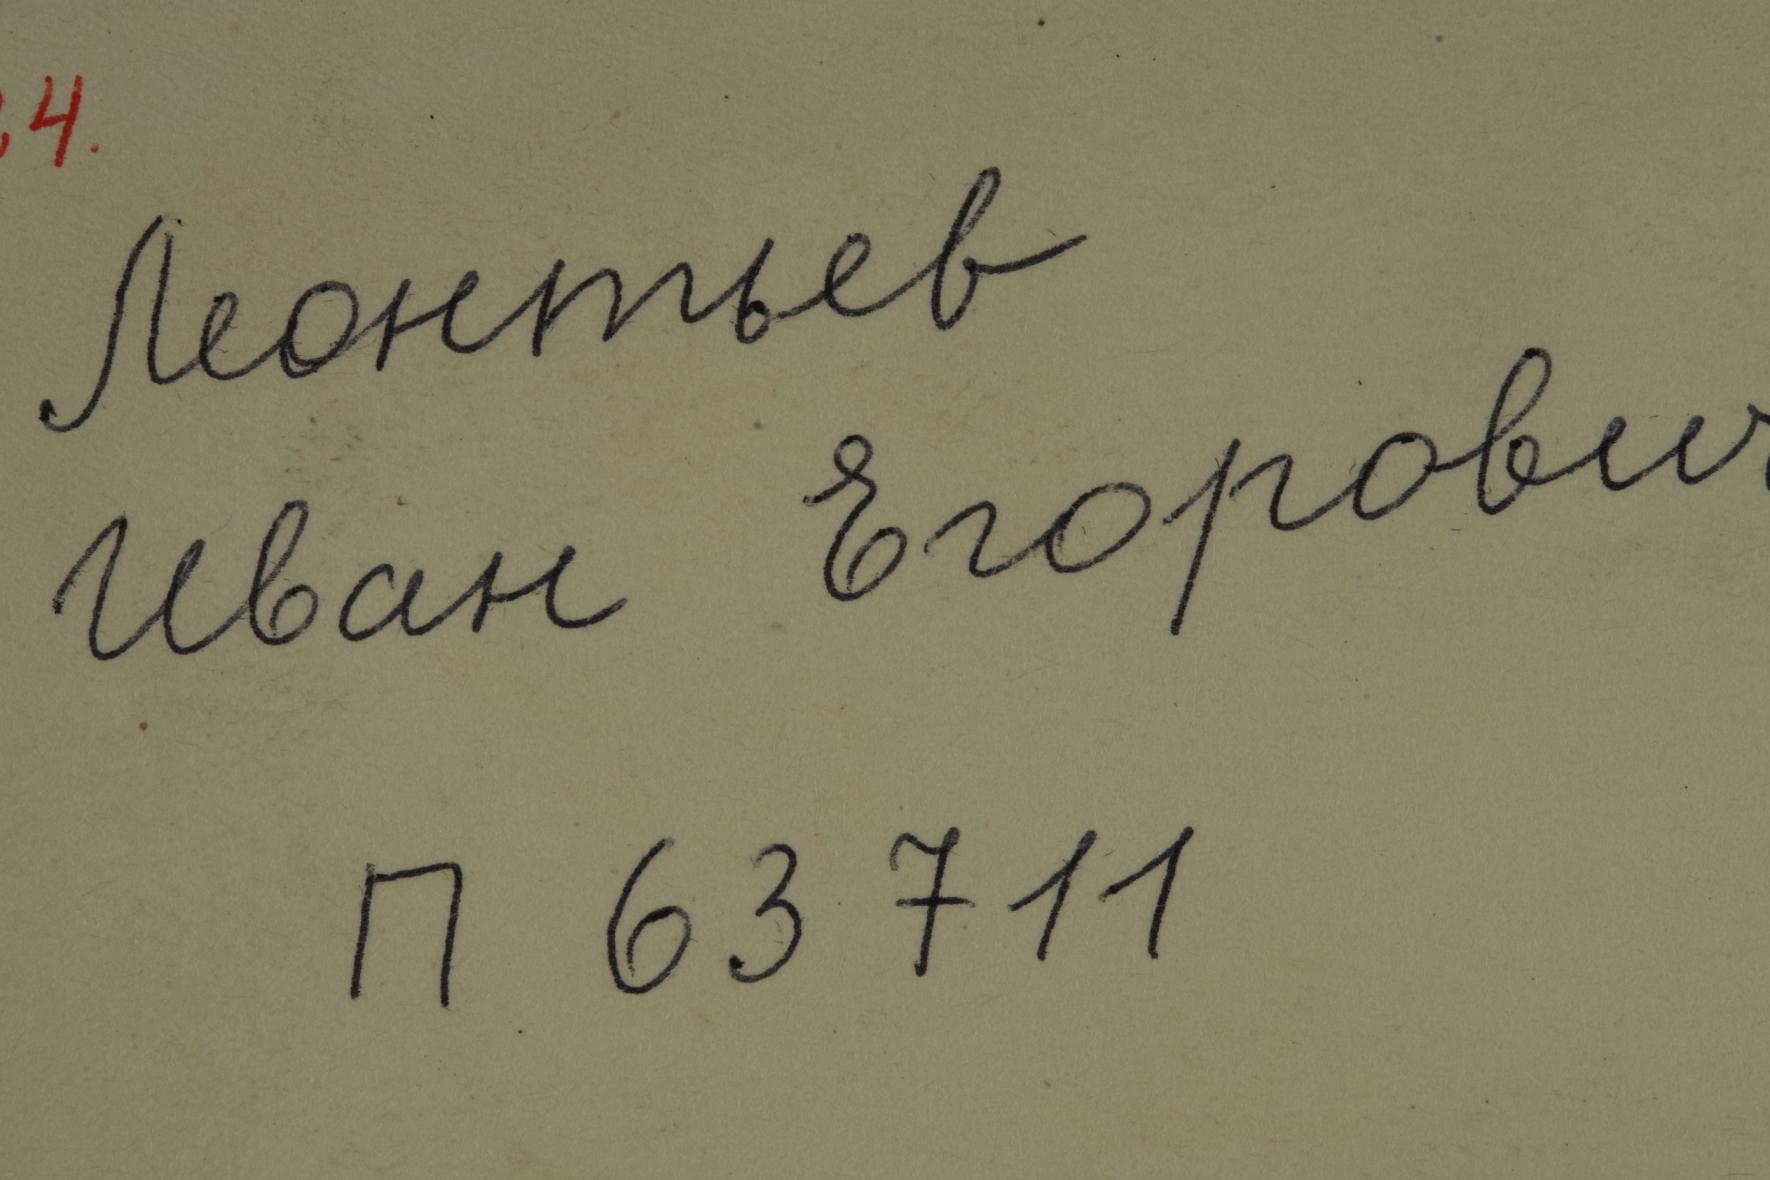 4.
Леонтьев
Иван Егорович
П 63711